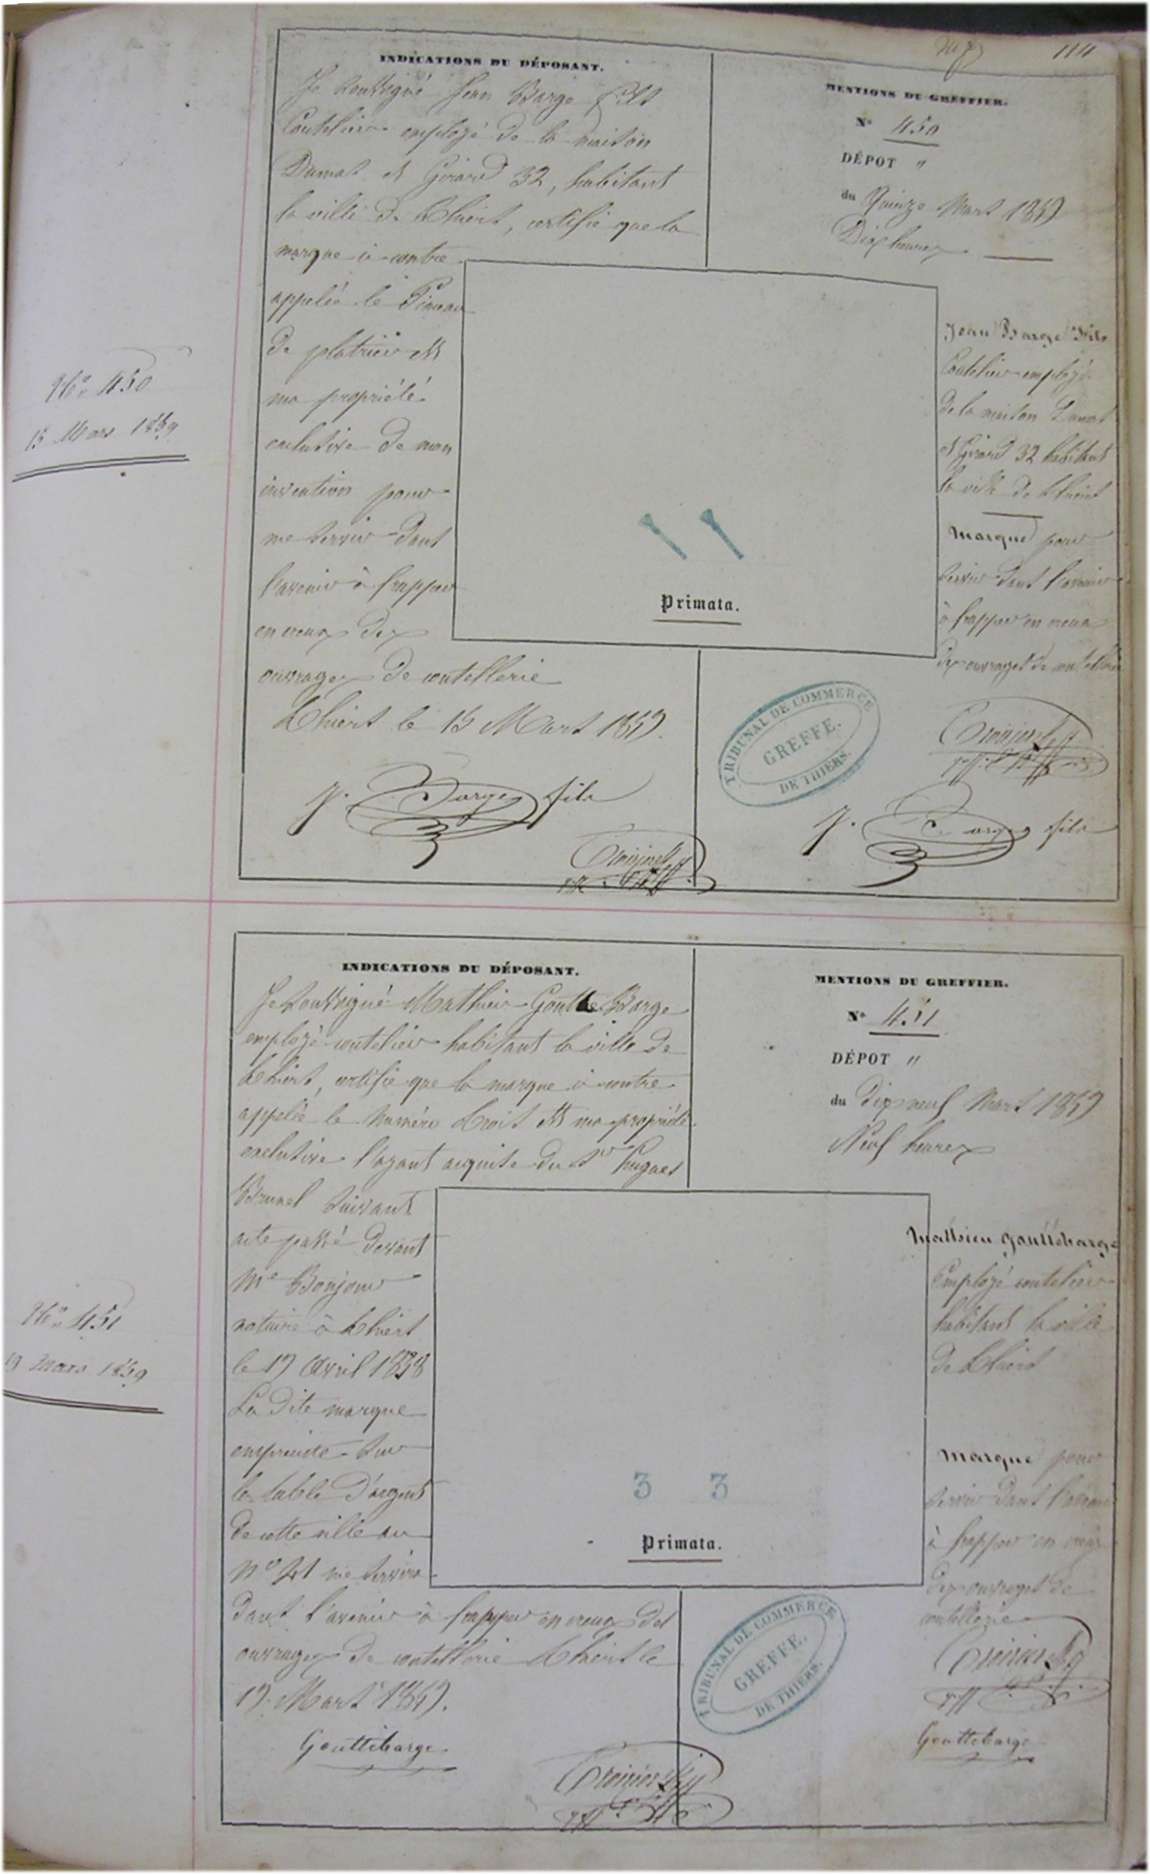 114
INDICATIONS DU DÉPOSANT.
Je soussigné Jean Barge fils
Coutelier employé de la maison
Dumas et Girard 32, habitant
la ville de Thiers, certifie que la
marque ci contre
appelée le Pinceau
de platrier est
ma propriété
exclusive de mon
invention pour
me servir dans
l'avenir à frapper
en creux des
ouvrages de coutellerie
Thiers le 15 Mars 1859.
J. Barge fils
MENTIONS DU GREFFIER.
N° 450
DÉPOT "
du Quinze Mars 1859
Dix heures
Jean Barge fils
Coutelier employé
de la maison Dumas
et Girard 32 habitant
la ville de Thiers
Marque pour
servir dans l'avenir
à frapper en creux
des ouvrages de coutellerie
J. Barge fils
Primata.
TRIBUNAL DE COMMERCE
GREFFE.
DE THIERS.
No 450
15 Mars 1859
INDICATIONS DU DÉPOSANT.
Je soussigné Mathieu Goutte Barge
employé coutelier habitant la ville de
Thiers, certifie que la marque ci contre
appelée le numéro trois est ma propriété
exclusive l'ayant acquise du Sr Hugues
Brunel suivant
acte passé devant
Me Bonjour
notaire à Thiers
le 19 Avril 1858
La dite marque
empreinte sur
la table d'argent
de cette ville au
No 41 me servira
dans l'avenir à frapper en creux des
ouvrages de coutellerie Thiers le
19 Mars 1859.
Gouttebarge
MENTIONS DU GREFFIER.
N° 451
DÉPOT "
du Dix neuf Mars 1859
Neuf heures
Mathieu Gouttebarge
Employé coutelier
habitant la ville
de Thiers
Marque pour
servir dans l'avenir
à frapper en creux
des ouvrages de
coutellerie
Gouttebarge
3 3
Primata.
TRIBUNAL DE COMMERCE
GREFFE.
DE THIERS.
No 451
19 Mars 1859